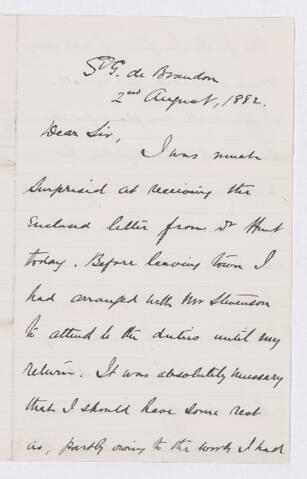 St G. de Brandon
2nd August, 1882.
Dear Sir,
I was much
surprised at receiving the
enclosed letter from Dr Hunt
today. Before leaving town I
had arranged with Mr Stevenson
to attend to the duties until my
return. It was absolutely necessary
that I should have some rest
as, partly owing to the work I had